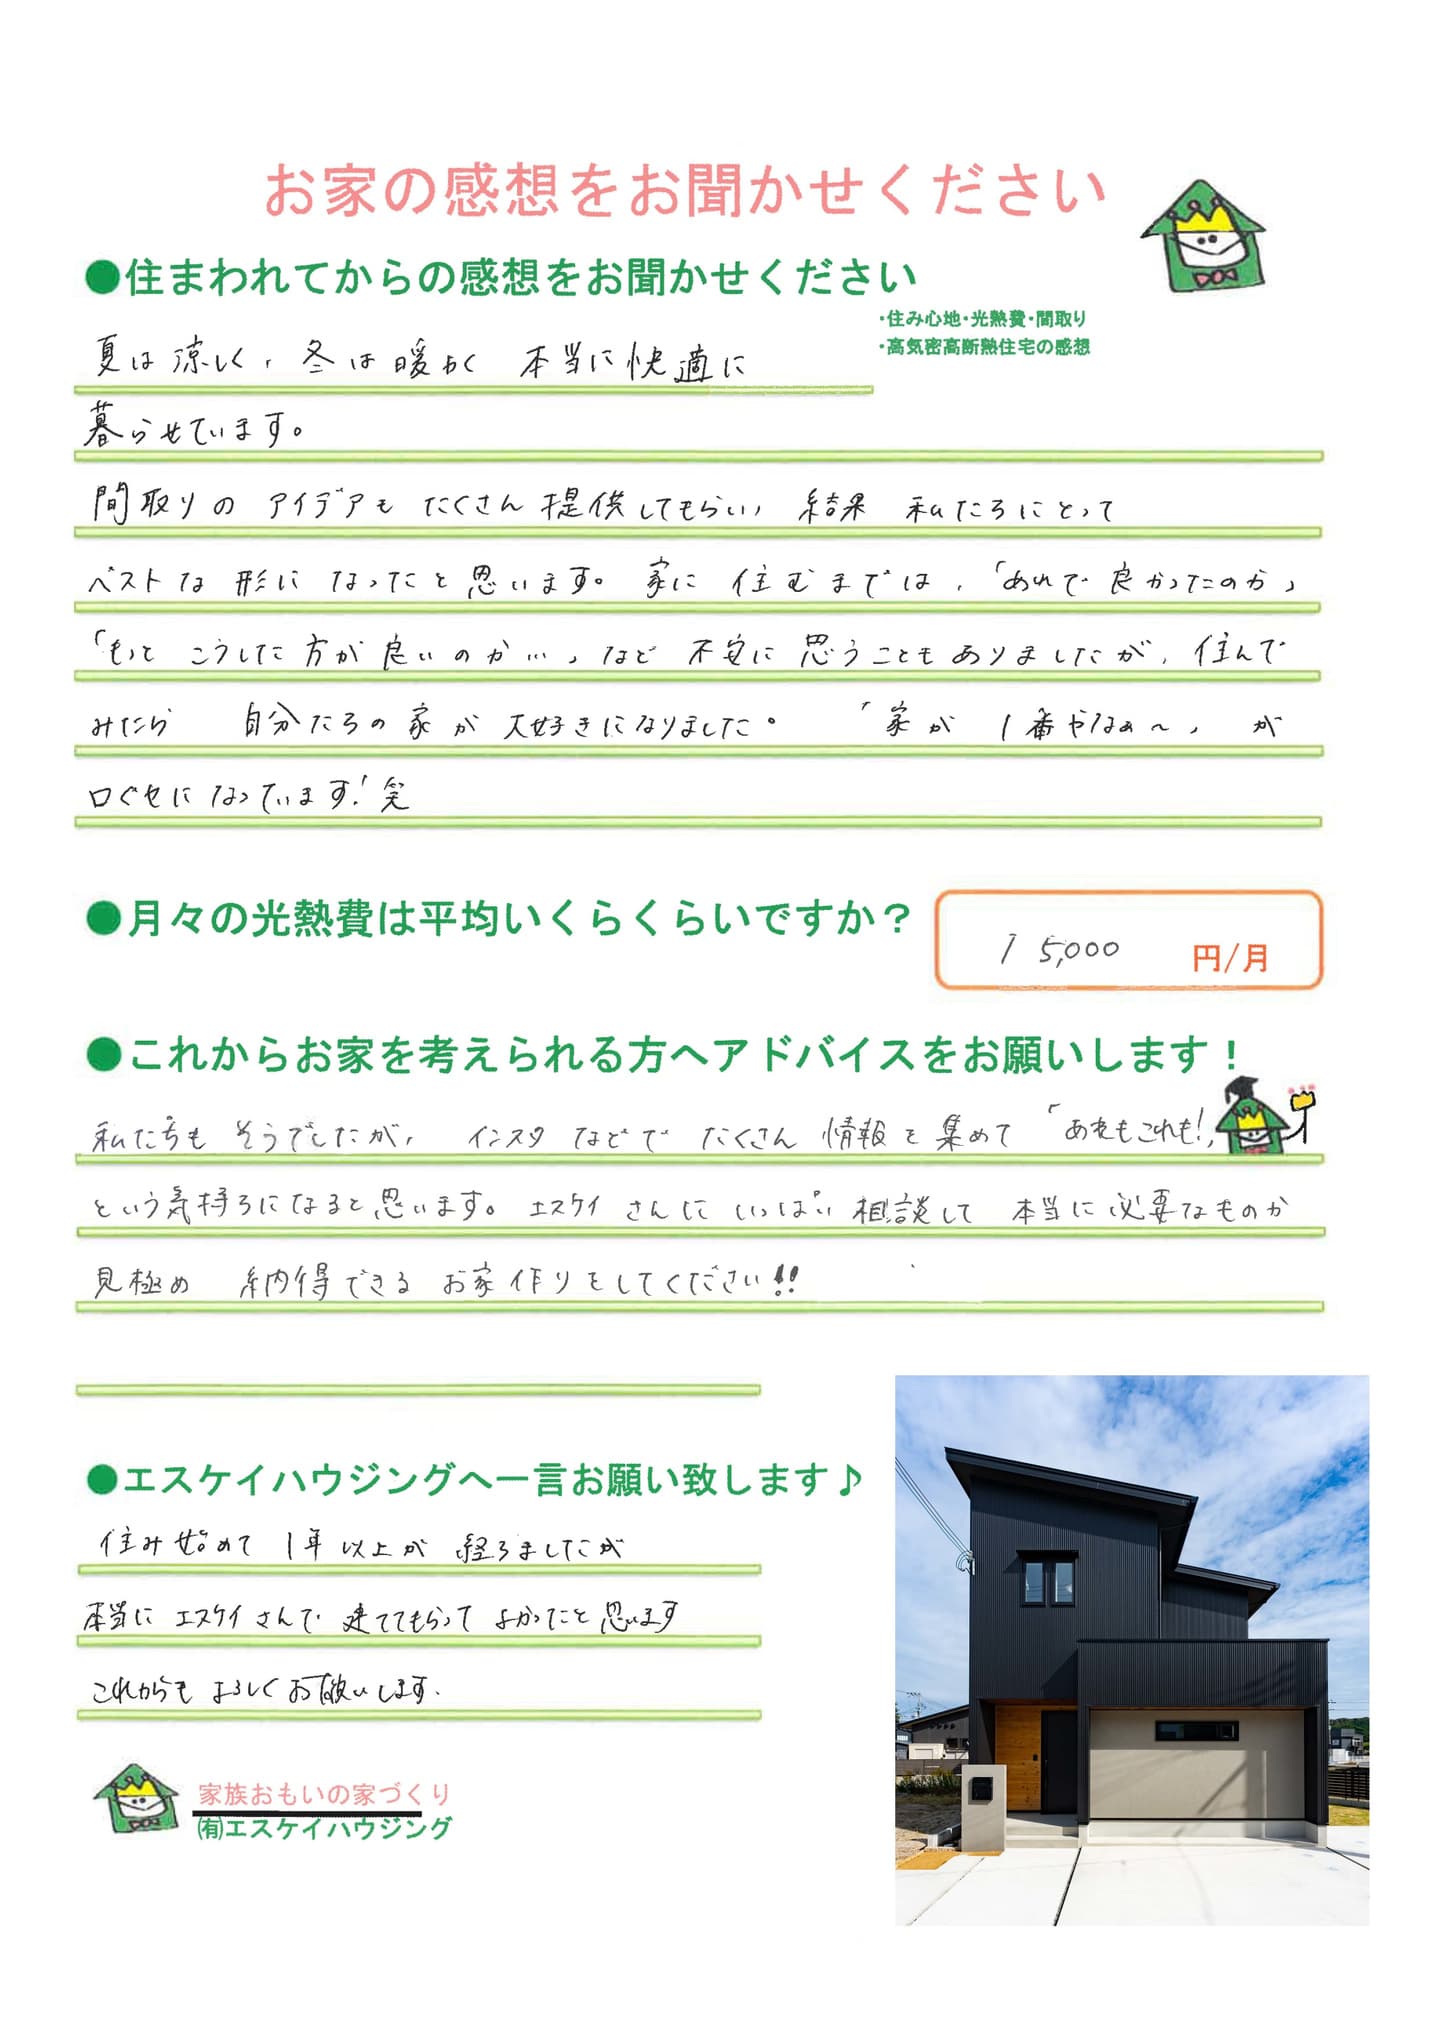 お家の感想をお聞かせください
●住まわれてからの感想をお聞かせください
・住み心地・光熱費・間取り
・高気密高断熱住宅の感想
夏は涼しく、冬は暖かく 本当に快適に
暮らせています。
間取りの アイデアも たくさん 提供してもらい、 結果 私たちにとって
ベストな 形に なったと思います。 家に 住むまでは、「あれで 良かったのか」
「もっと こうした方が良いのか…」など 不安に 思うこともありましたが、住んで
みたら 自分たちの家が 大好きになりました。 「家が 1番やなぁ〜」 が
口ぐせになっています!笑
●月々の光熱費は平均いくらくらいですか？
15,000 円/月
●これからお家を考えられる方へアドバイスをお願いします！
私たちも そうでしたが、 インスタ などで たくさん 情報を集めて 「あれもこれも!」
という気持ちになると思います。 エスケイ さんに いっぱい 相談して 本当に必要なものか
見極め 納得できる お家作りをしてください!!
●エスケイハウジングへ一言お願い致します♪
住み始めて 1年以上が 経ちましたが
本当に エスケイさんで 建ててもらって よかったと思います
これからも よろしくお願いします.
家族おもいの家づくり
㈲エスケイハウジング